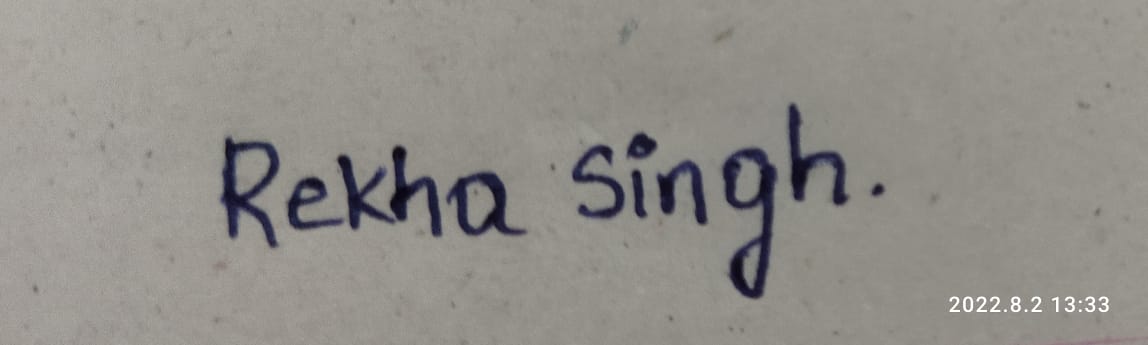 Rekha Singh.
2022.8.2 13:33